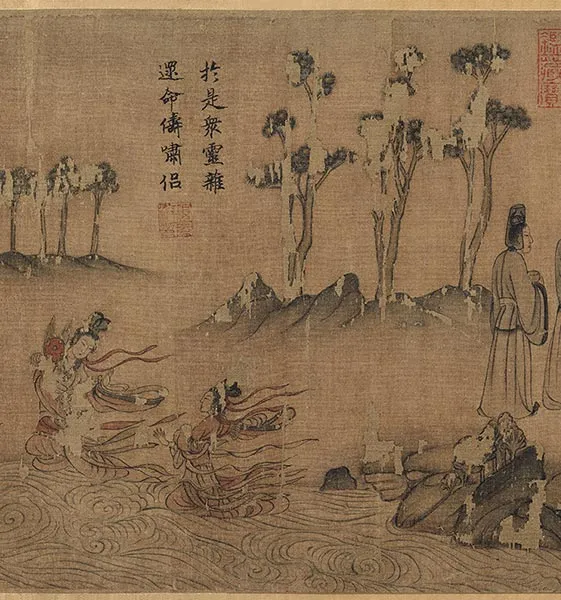 扵是衆靈雜
遝命儔嘯侶